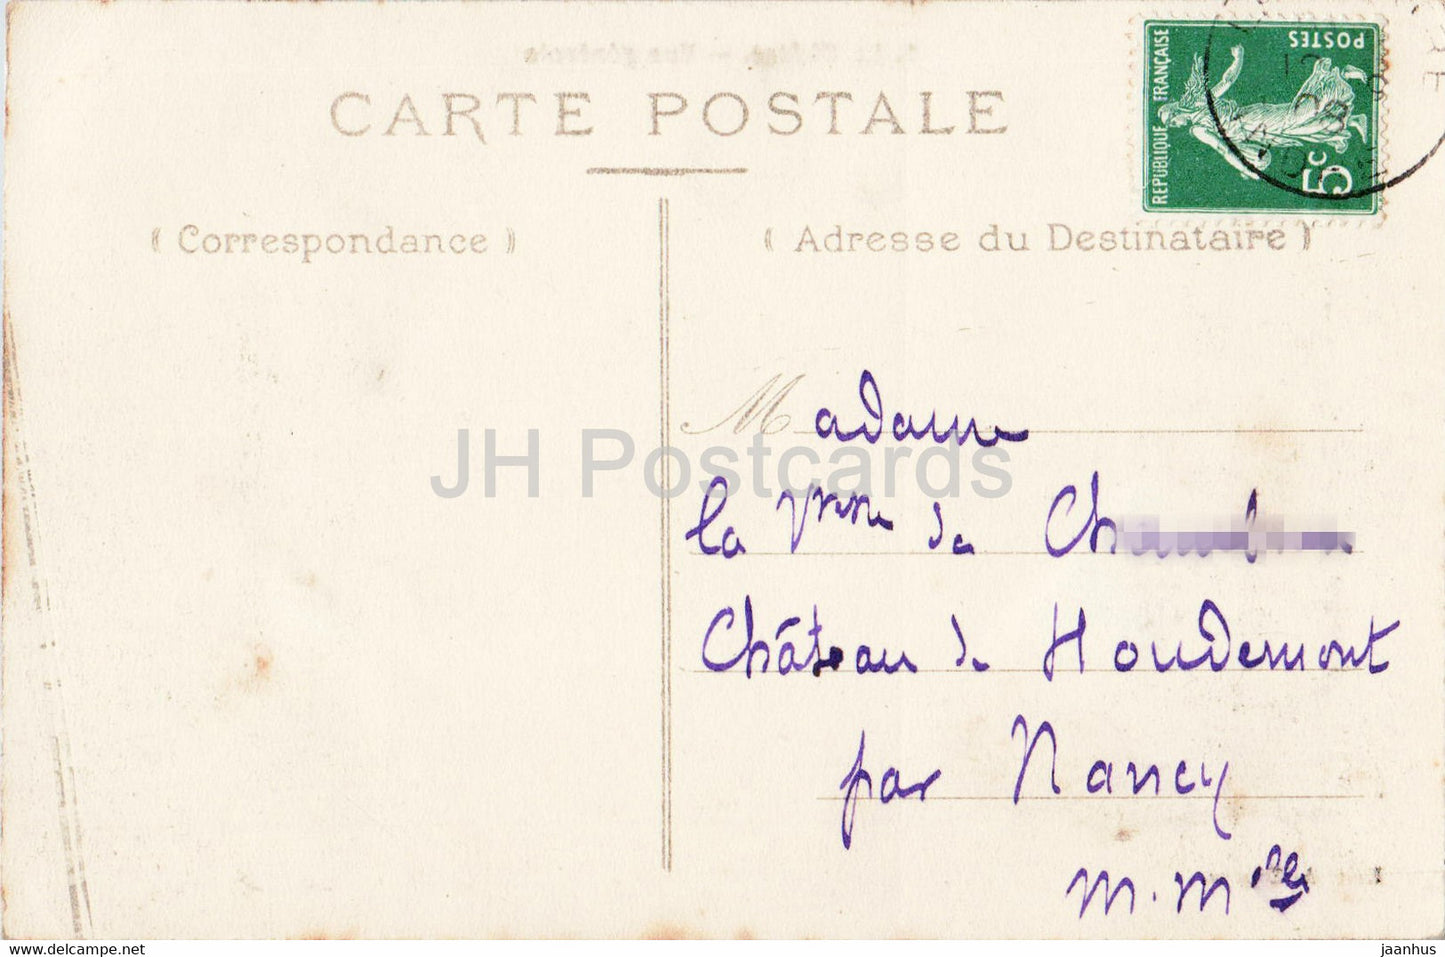 CARTE POSTALE
RÉPUBLIQUE FRANÇAISE
POSTES
5c
08
( Correspondance )
( Adresse du Destinataire )
Madame
la Vtesse de Ch
Château de Houdemont
par Nancy
M. Mlle
JH Postcards
www.delcampe.net
jaanhus